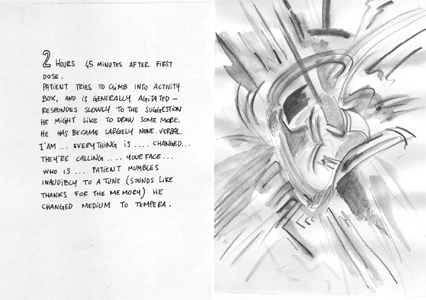 2 HOURS 45 MINUTES AFTER FIRST
DOSE.
PATIENT TRIES TO CLIMB INTO ACTIVITY
BOX, AND IS GENERALLY AGITATED –
RESPONDES SLOWLY TO THE SUGGESTION
HE MIGHT LIKE TO DRAW SOME MORE.
HE HAS BECAME LARGELY NONE VERBAL.
I'AM ... EVERYTHING IS .... CHANGED...
THEY'RE CALLING .... YOUR FACE...
WHO IS ... PATIENT MUMBLES
INAUDIBLY TO A TUNE (SOUNDS LIKE
THANKS FOR THE MEMORY) HE
CHANGED MEDIUM TO TEMPERA.